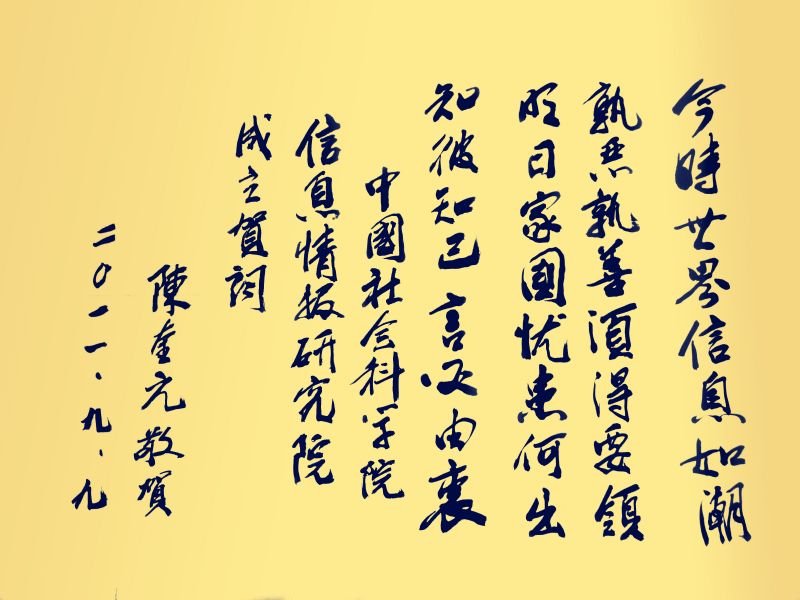 今時世界信息如潮
孰惡孰善須得要領
明日家國忧患何出
知彼知己言必由衷
中國社会科学院
信息情报研究院
成立賀詞
陳奎元敬賀
二〇一一、九、九